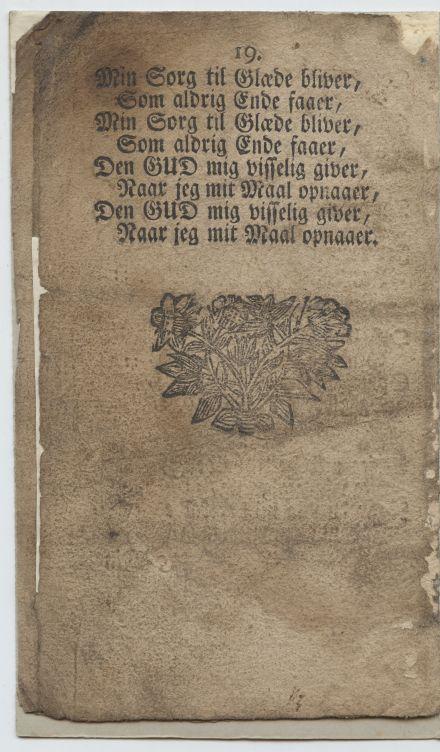 19.
Min Sorg til Glæde bliver,
Som aldrig Ende faaer,
Min Sorg til Glæde bliver,
Som aldrig Ende faaer,
Den GUD mig visselig giver,
Naar jeg mit Maal opnaaer,
Den GUD mig visselig giver,
Naar jeg mit Maal opnaaer.